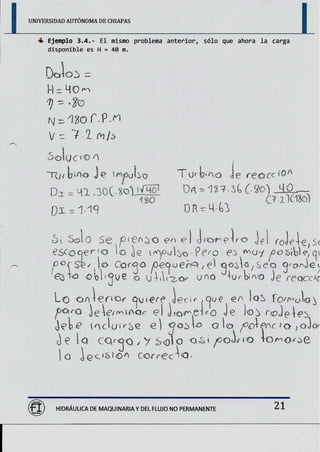 UNIVERSIDAD AUTÓNOMA DE CHIAPAS
Ejemplo 3.4.- El mismo problema anterior, sólo que ahora la carga
disponible es H = 40 m.
Datos =
H = 40 m
η = .80
N = 180 r.P.M
V = 7.2 m/s
Solución
Turbina de impulso Turbina de reacción
DI = 42.30(.80) √40 / 180 DR = 187.36 (.80) 40 / (7.2)(180)
DI = 1.19 DR = 4.63
Si Solo se pienso en el diámetro del rodete, s
escogerío lo de impulso. Pero es muy posible, q
por ser lo carga pequeña, el gasto, sea grande y
esto obligue a utilizar una turbina de reacció
Lo anterior quiere decir, que en las formulas
para determinar el diámetro de los rodetes
debe incluirse el gasto a la potencia, ada
de la carga, y solo asi podría tomarse
la decisión correcta.
HIDRÁULICA DE MAQUINARIA Y DEL FLUJO NO PERMANENTE 21